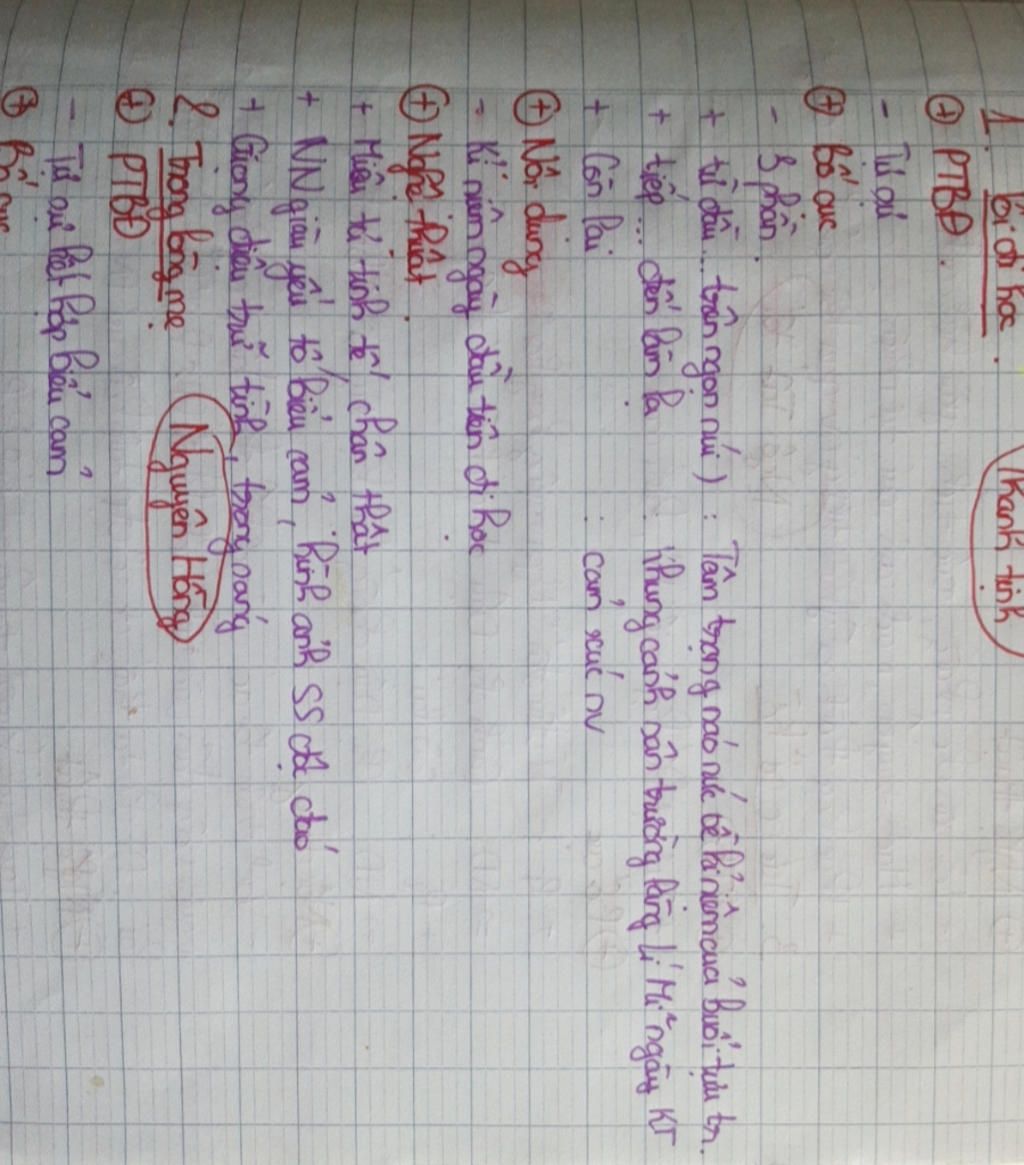 1. Tôi đi học. Thanh tịnh
+ PTBĐ.
- Tự sự
+ Bố cục
- 3 phần.
+ từ đầu... trên ngọn núi) : Tâm trạng náo nức về kỉ niệm của buổi tựu tr.
+ tiếp... đến lạm lạ : khung cảnh sân trường làng Lí Mĩ ngày KT
+ Còn lại : cảm xúc nv
+ Nội dung
- Kỉ niệm ngày đầu tiên đi học
+ Nghệ thuật.
+ Miêu tả tinh tế, chân thật
+ NN giàu yếu tố biểu cảm, hình ảnh SS độc đáo
+ Giọng điệu trữ tình, trong sáng
2. Trong lòng mẹ. Nguyên Hồng
+ PTBĐ
- Tự sự kết hợp biểu cảm
+ Bố cục